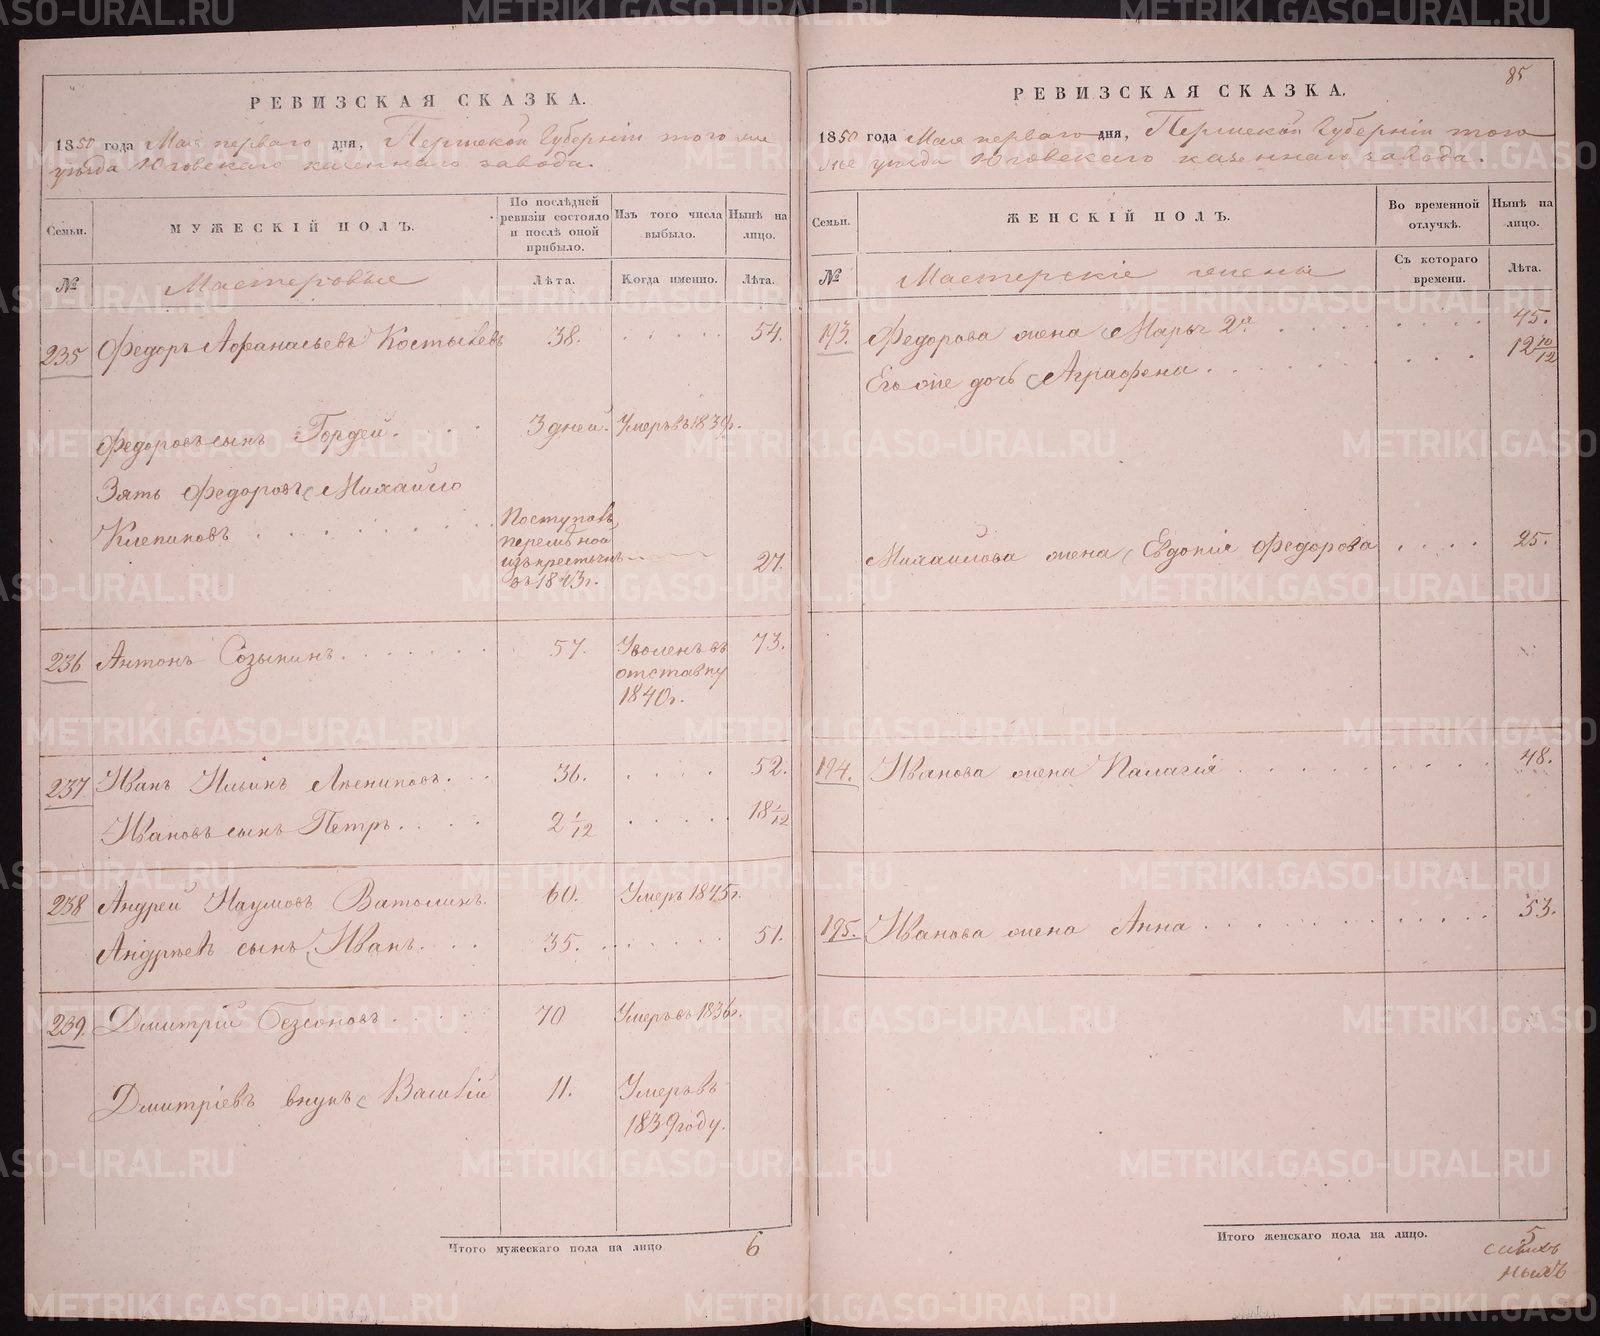 РЕВИЗСКАЯ СКАЗКА.
1850 года Мая перваго дня, Пермской Губерніи того же
уѣзда Юговскаго казеннаго завода.
Семьи.
МУЖЕСКІЙ ПОЛЪ.
По послѣдней
ревизіи состояло
и послѣ оной
прибыло.
Изъ того числа
выбыло.
Нынѣ на
лицо.
№
Мастеровые
Лѣта.
Когда именно.
Лѣта.
235 Федоръ Афанасьевъ Костылевъ 38. 54.
Федоровъ сынъ Гордей. 3 дней. Умеръ въ 1839г.
Зять Федоровъ Михайло
Клепиковъ
Поступовъ
перемѣной
изъ крестьянъ
въ 1843г. 27.
236 Антонъ Созыкинъ. 57. Уволенъ въ 73.
отставку
1840г.
237 Иванъ Ильинъ 36. 52.
Ивановъ сынъ Петръ. 2 1/12 18 1/12
238 Андрей Наумовъ Ватолинъ. 60. Умеръ 1845г.
Андреевъ сынъ Иванъ. 35. 51.
239. Дмитрій Безсоновъ. 70 Умеръ въ 1836г.
Дмитріевъ внукъ Василій 11. Умеръ въ
1839 году.
Итого мужескаго пола на лицо 6
85
РЕВИЗСКАЯ СКАЗКА.
1850 года Мая перваго дня, Пермской Губерніи того
же уѣзда Юговскаго казеннаго завода.
Семьи.
ЖЕНСКІЙ ПОЛЪ.
Во временной
отлучкѣ.
Нынѣ на
лицо.
№
Мастерскіе жены
Съ котораго
времени.
Лѣта.
193. Федорова жена Марья 2я. 45.
Его же дочь Аграфена. 12 10/12
Михайлова жена Евдокія Федорова 25.
194. Иванова жена Палагія 48.
195. Иванова жена Анна 53.
Итого женскаго пола на лицо. 5
METRIKI.GASO-URAL.RU